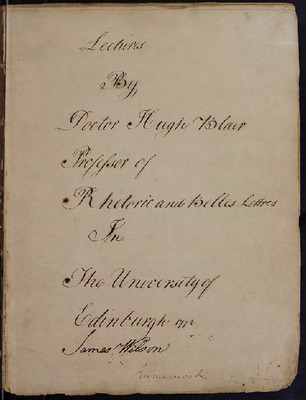 Lectures
By
Doctor Hugh Blair
Professor of
Rhetoric and Belles Lettres
In
The University of
Edinburgh
James Wilson
Kilmarnock